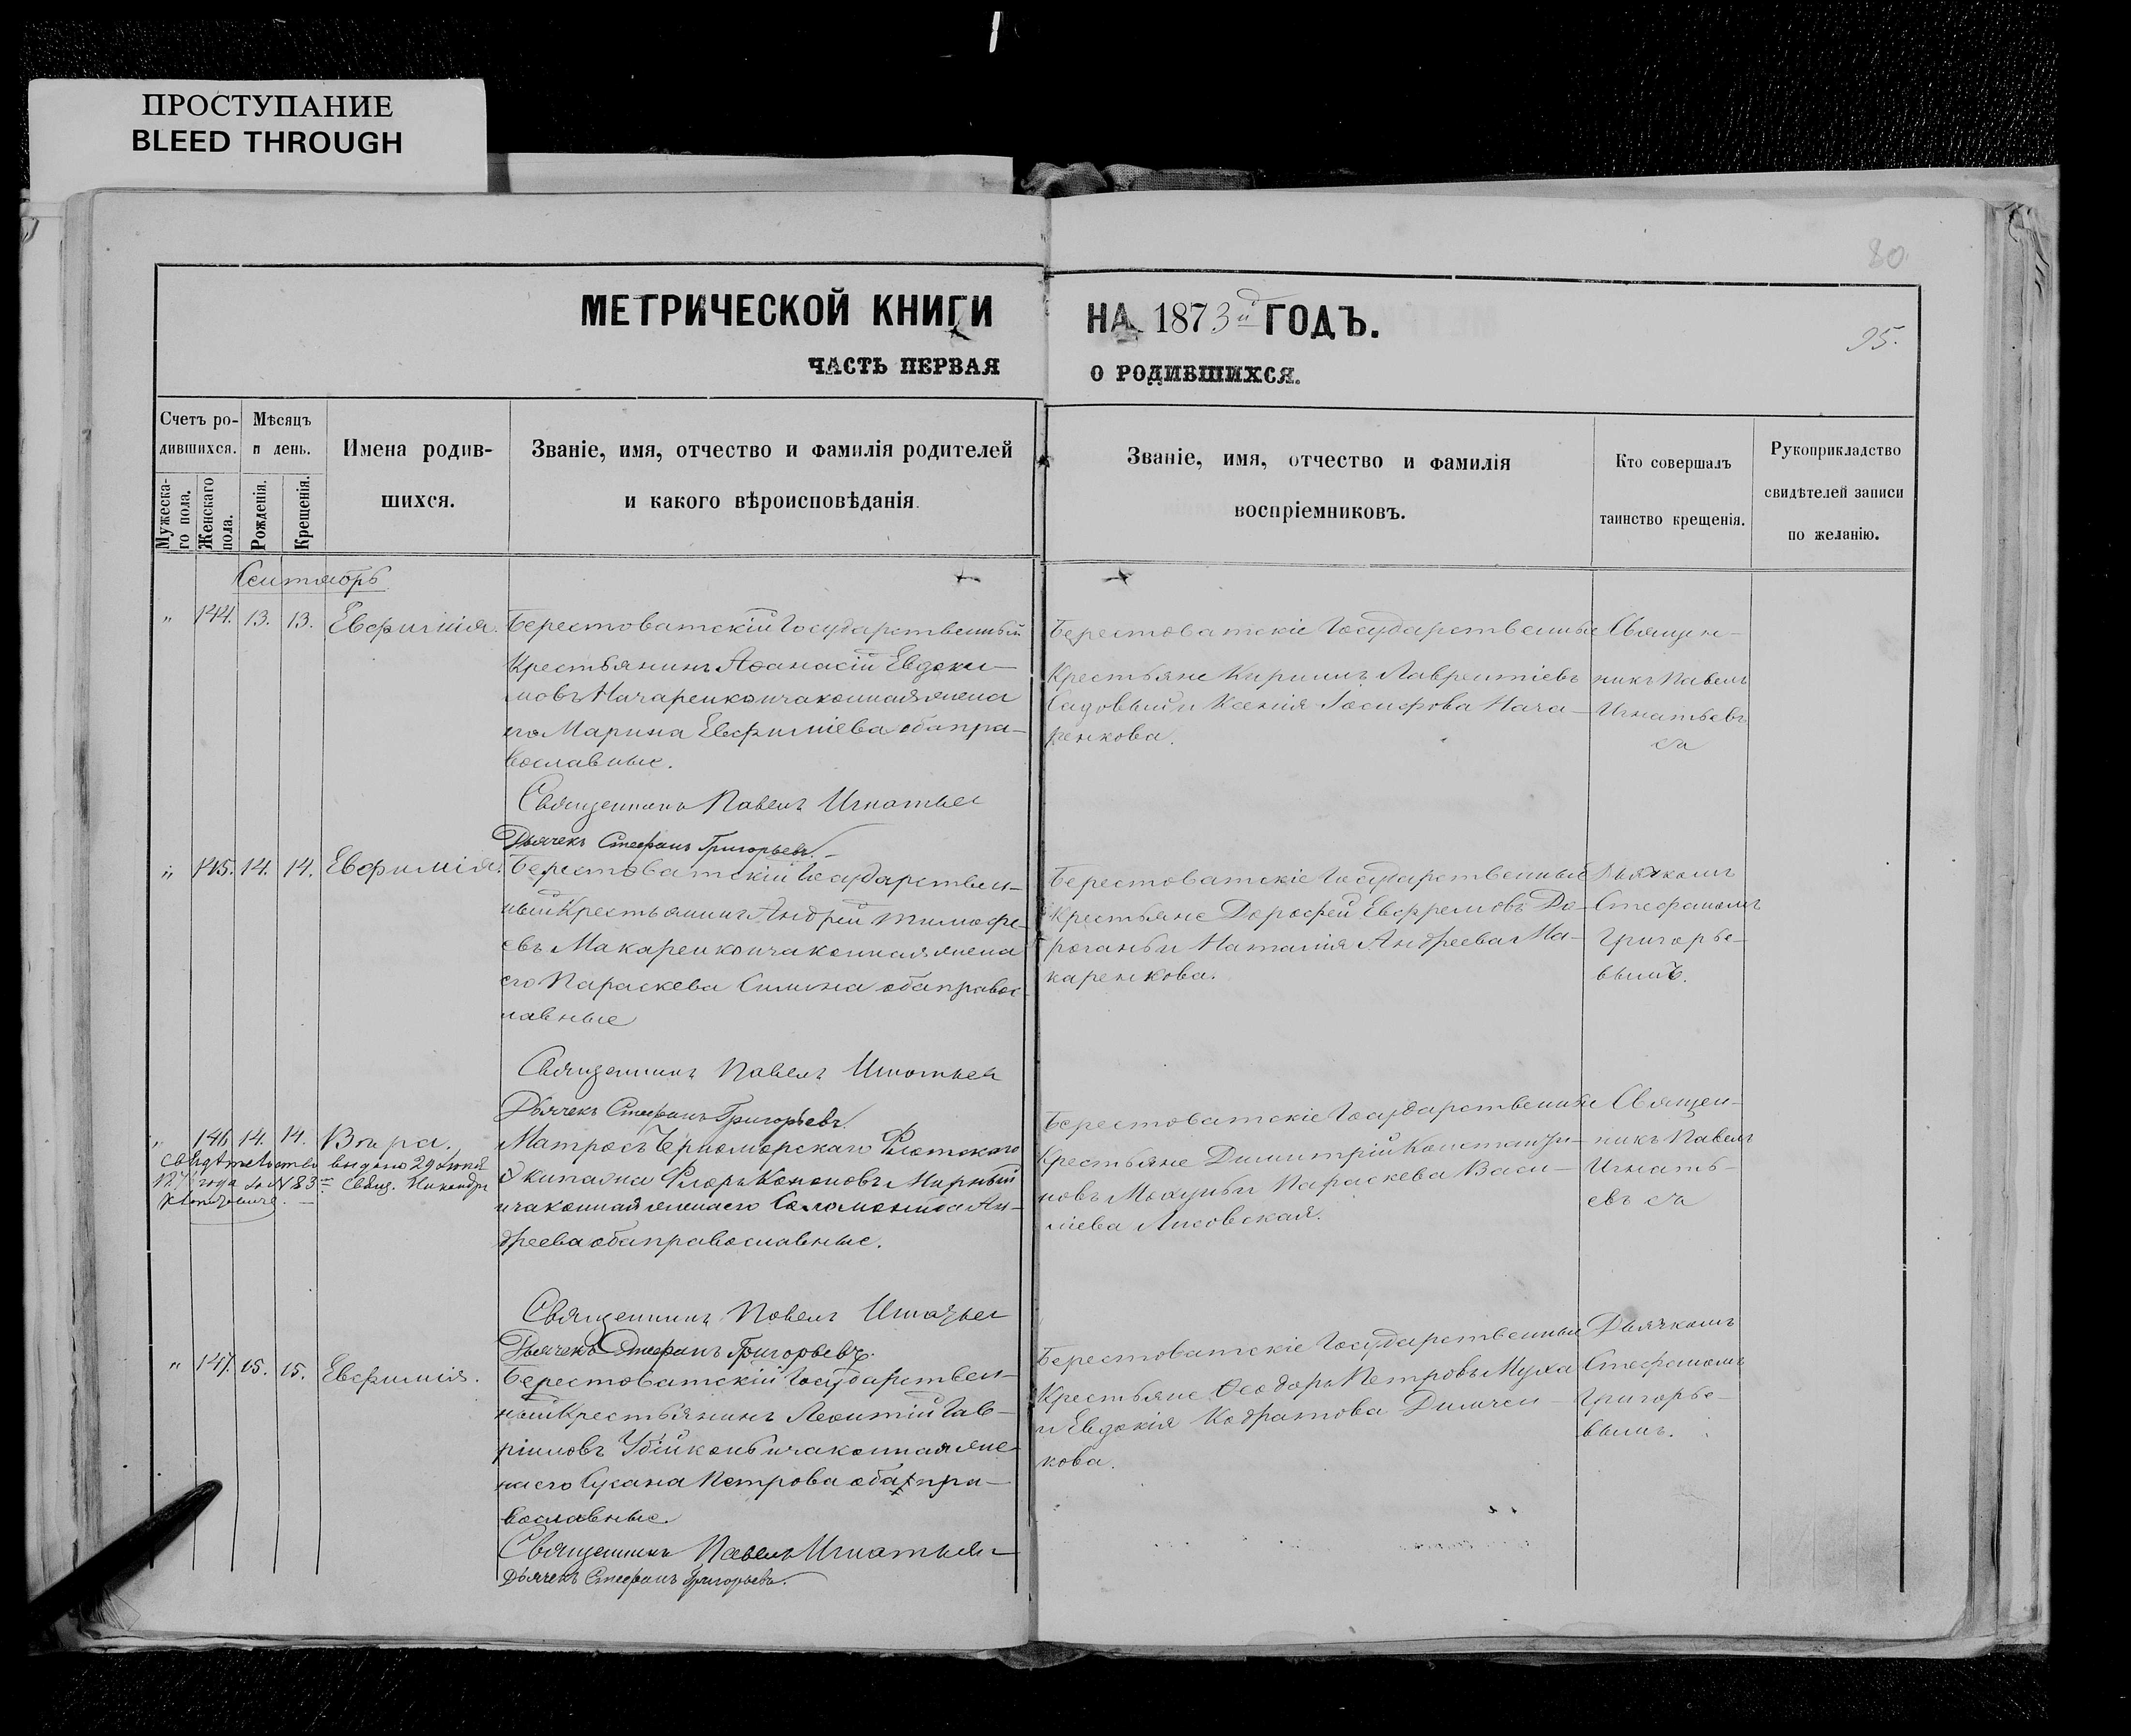 ПРОСТУПАНИЕ
BLEED THROUGH
80
МЕТРИЧЕСКОЙ КНИГИ НА 1873й ГОДЪ.
95.
ЧАСТЬ ПЕРВАЯ О РОДИВШИХСЯ.
Счетъ ро-
дившихся.
Мужеска-
го пола.
Женскаго
пола.
Мѣсяцъ
и день.
Рожденія.
Крещенія.
Имена родив-
шихся.
Званіе, имя, отчество и фамилія родителей
и какого вѣроисповѣданія.
Званіе, имя, отчество и фамилія
воспріемниковъ.
Кто совершалъ
таинство крещенія.
Рукоприкладство
свидѣтелей записи
по желанію.
Сентябрь
" 144. 13. 13. Евфимія.
Берестоватскій Государственный
Крестьянинъ Аѳанасій Евдоки-
мовъ Начаренко и законная жена
его Марина Евфиміева оба пра-
вославные.
Священникъ Павелъ Игнатьев
Дьячекъ Стефанъ Григорьевъ.
Берестоватскіе Государственные
Крестьяне Кириллъ Лаврентіевъ
Садовый и Ксенія Іосифова Нача-
ренкова.
Священ-
никъ Павелъ
Игнатьевъ
съ
" 145. 14. 14. Евфимія.
Берестоватскій Государствен-
ный Крестьянинъ Андрей Тимофе-
евъ Макаренко и законная жена
его Параскева Симина оба правос-
лавные
Священникъ Павелъ Игнатьев
Дьячекъ Стефанъ Григорьевъ.
Берестоватскіе Государственные
Крестьяне Дорофей Евфремовъ До-
рогань и Наталія Андреева Ма-
каренкова.
Дьячкомъ
Стефаномъ
Григорье-
вымъ.
" 146 14. 14. Вѣра.
Свидѣтельство выдано 29 Іюня
года за № 83 Свящ. Никандръ
Матросъ Черноморскаго Флотскаго
Экипажа Флоръ Кононовъ Мирный
и законная жена его Соломонида Ан-
дреева оба православные.
Священникъ Павелъ Игнатьев
Дьячекъ Стефанъ Григорьевъ.
Берестоватскіе Государственные
Крестьяне Димитрій Константи-
новъ и Параскева Васи-
ліева Лисовская.
Священ-
никъ Павелъ
Игнать-
евъ съ
" 147. 15. 15. Евфимія.
Берестоватскій Государствен-
ный Крестьянинъ Леонтій Гав-
ріиловъ и законная же-
на его Сусана Петрова оба пра-
вославные.
Священникъ Павелъ Игнатьев
Дьячекъ Стефанъ Григорьевъ.
Берестоватскіе Государственные
Крестьяне Ѳеодоръ Петровъ Муха
и Евдокія Кодратова Димчен-
кова.
Дьячкомъ
Стефаномъ
Григорье-
вымъ.